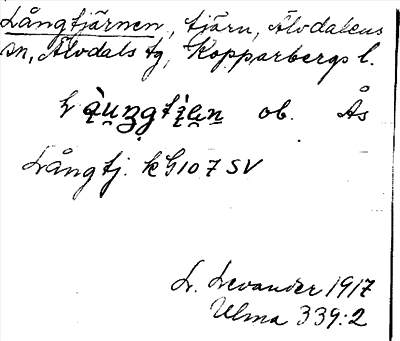 Långtjärnen, tjärn, Älvdalens
sn, Älvdals tg, Kopparbergs l.
ob. Ås
Långtj. kG107 SV
L. Levander 1917
Ulma 339:2